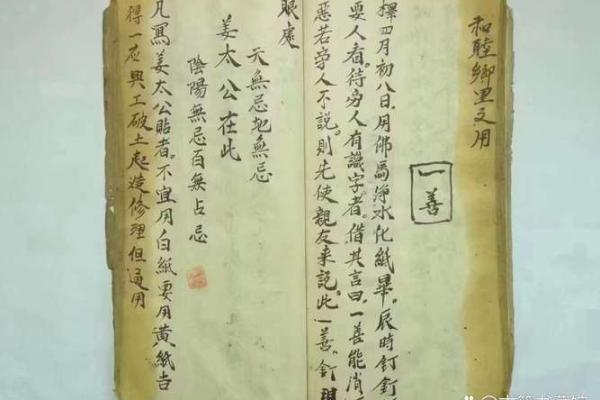 和睦鄉里之用
一善
擇四月初八日.用佛馬淨水化紙畢.辰時釘釘
要人看.待旁人有識字者.借其言曰.一善能消
惡若旁人不說.則先使親友來說.此一善.釘現
眼處
天無忌地無忌
姜太公在此
陰陽無忌百無占忌
凡寫姜太公貼者.不宜用白紙要用黃紙吉
得一应興工破土起造修理但通用